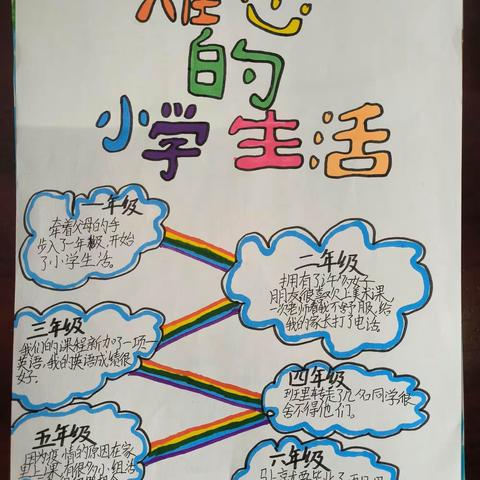 难忘
的
小学生活
一年级
牵着父母的手
步入了一年级,开始
了小学生活。
二年级
拥有了许多好
朋友很喜欢上美术课,
一次老师看我不舒服,给
我的家长打了电话
三年级
我们的课程新加了一项
英语,我的英语成绩很
好。
四年级
班里转走了几名同学很
舍不得他们。
五年级
因为疫情的原因在家
里上课,有很多小组活
六年级
马上就要毕业了